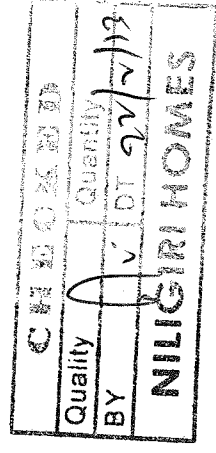 CHECKED
Quality Quantity
BY DT 22/2/13
NILIGIRI HOMES